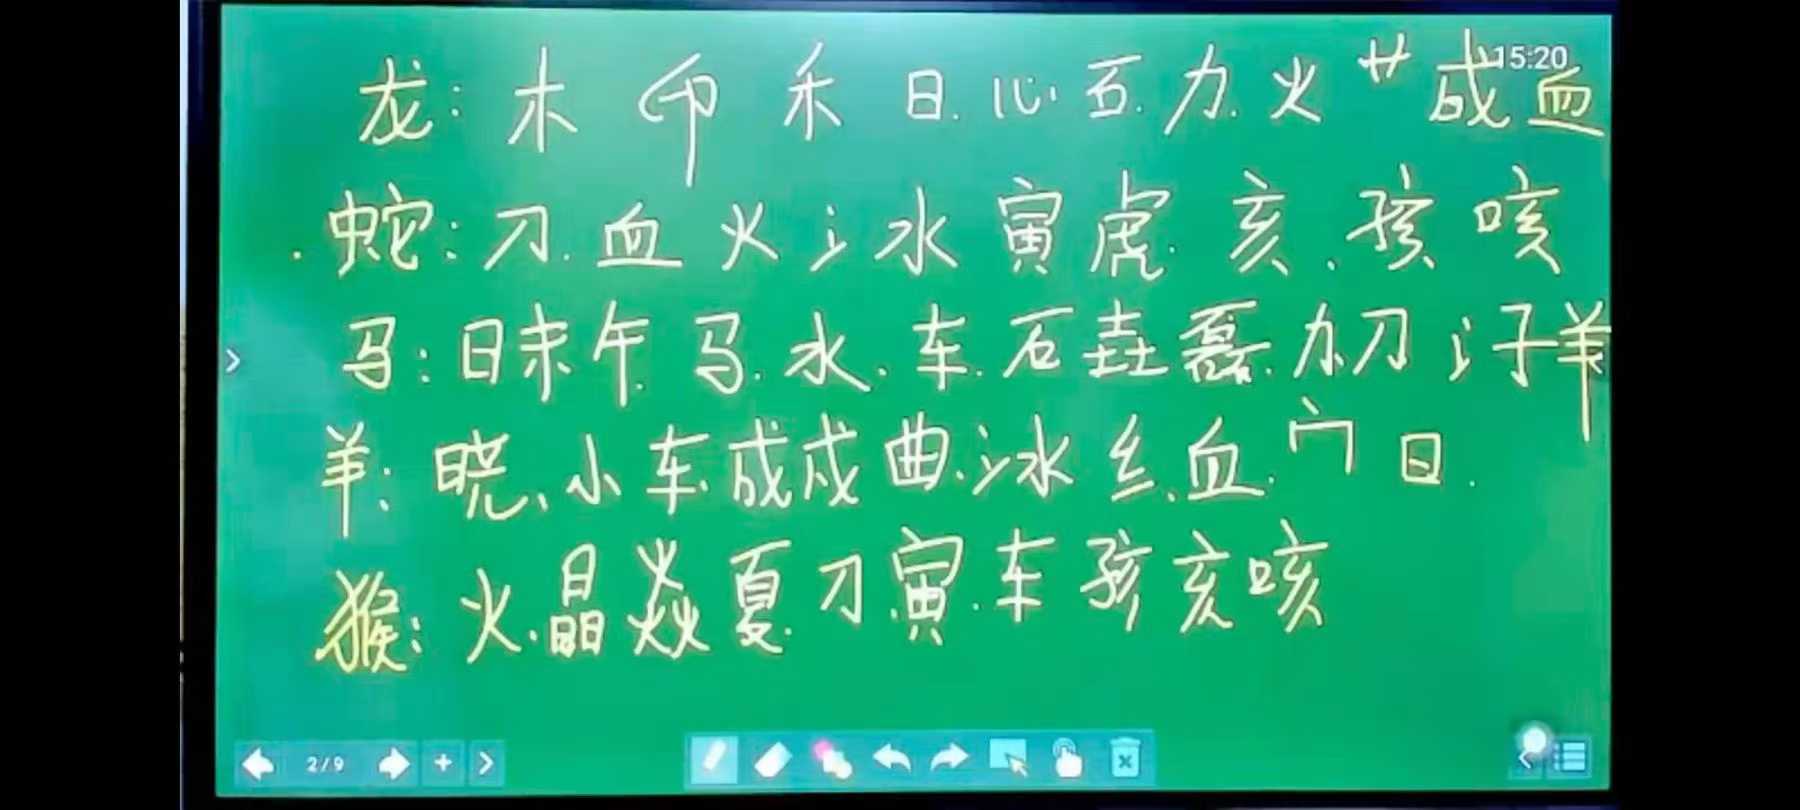 15:20
龙: 木 卬 禾 日. 忄心. 石. 力. 火 艹 成 血
蛇: 刀. 血 火 氵水 寅 虎. 亥. 孩 咳
马: 日未午. 马. 水. 车. 石垚磊. 力.刀 氵子羊
羊: 晓、小车.成戍曲.氵冰纟.血.门日.
猴: 火.晶焱夏.刀.寅.车孩亥咳
2/9